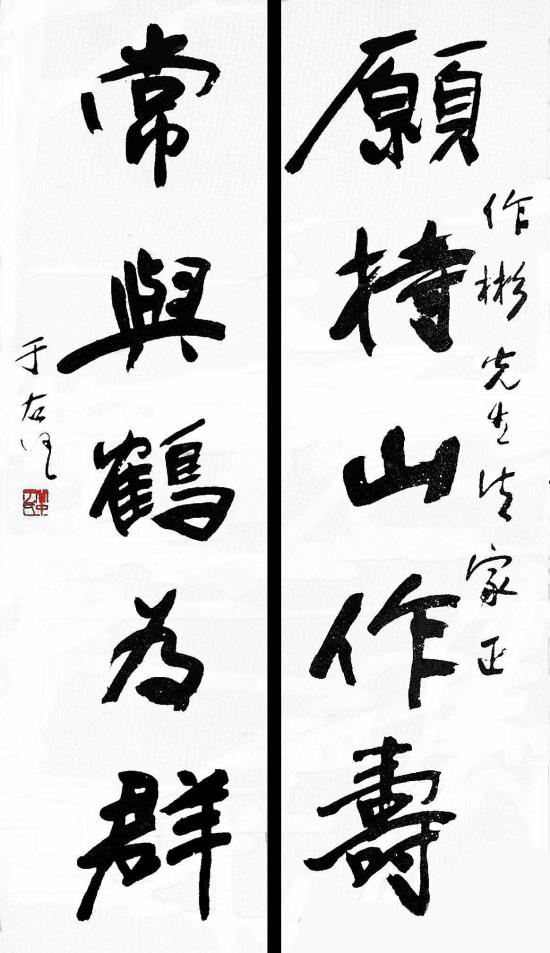 作彬先生法家正
願持山作壽
常與鶴為群
于右任